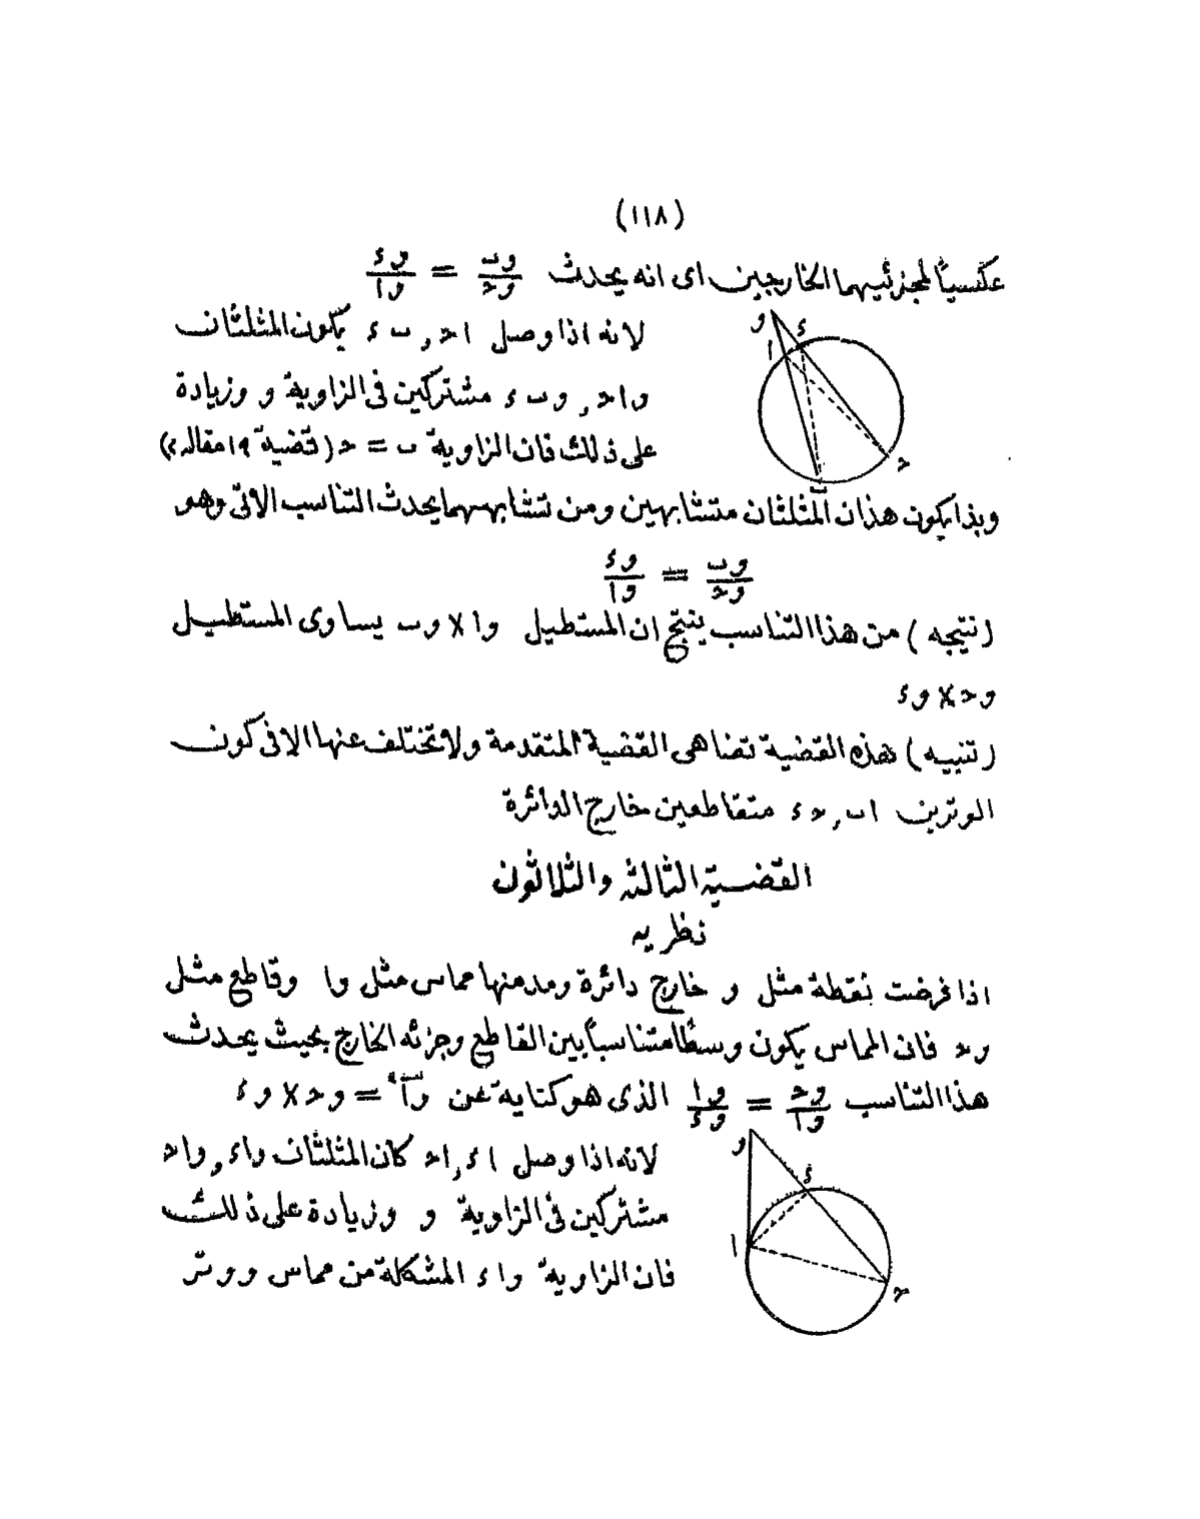 (١١٨)
عكسياً لجزئيهما الخارجين اى انه يحدث وب/وح = وء/وا
لانه اذا وصل اح , ب ء يكون المثلثان
واح , وب ء مشتركين فى الزاوية و وزيادة
على ذلك فان الزاوية ب = ح (قضية ١٩ مقاله ٢)
وبذا يكون هذان المثلثان متشابهين ومن تشابههما يحدث التناسب الاتى وهو
وب/وح = وء/وا
(نتيجه) من هذا التناسب ينتج ان المستطيل وا × وب يساوى المستطيل
وح × وء
(تنبيه) هذه القضية تضاهى القضية المتقدمة ولا تختلف عنها الا فى كون
الوترين اب , ح ء متقاطعين خارج الدائرة
القضية الثالثة والثلاثون
نظريه
اذا فرضت نقطة مثل و خارج دائرة ومد منها مماس مثل وا وقاطع مثل
وح فان المماس يكون وسطاً متناسباً بين القاطع وجزئه الخارج بحيث يحدث
هذا التناسب وح/وا = وا/وء الذى هو كناية عن وا٢ = وح × وء
لانه اذا وصل اء , اح كان المثلثان واء , واح
مشتركين فى الزاوية و وزيادة على ذلك
فان الزاوية واء المشكلة من مماس ووتر
و
ء
ا
ح
ب
و
ء
ا
ح